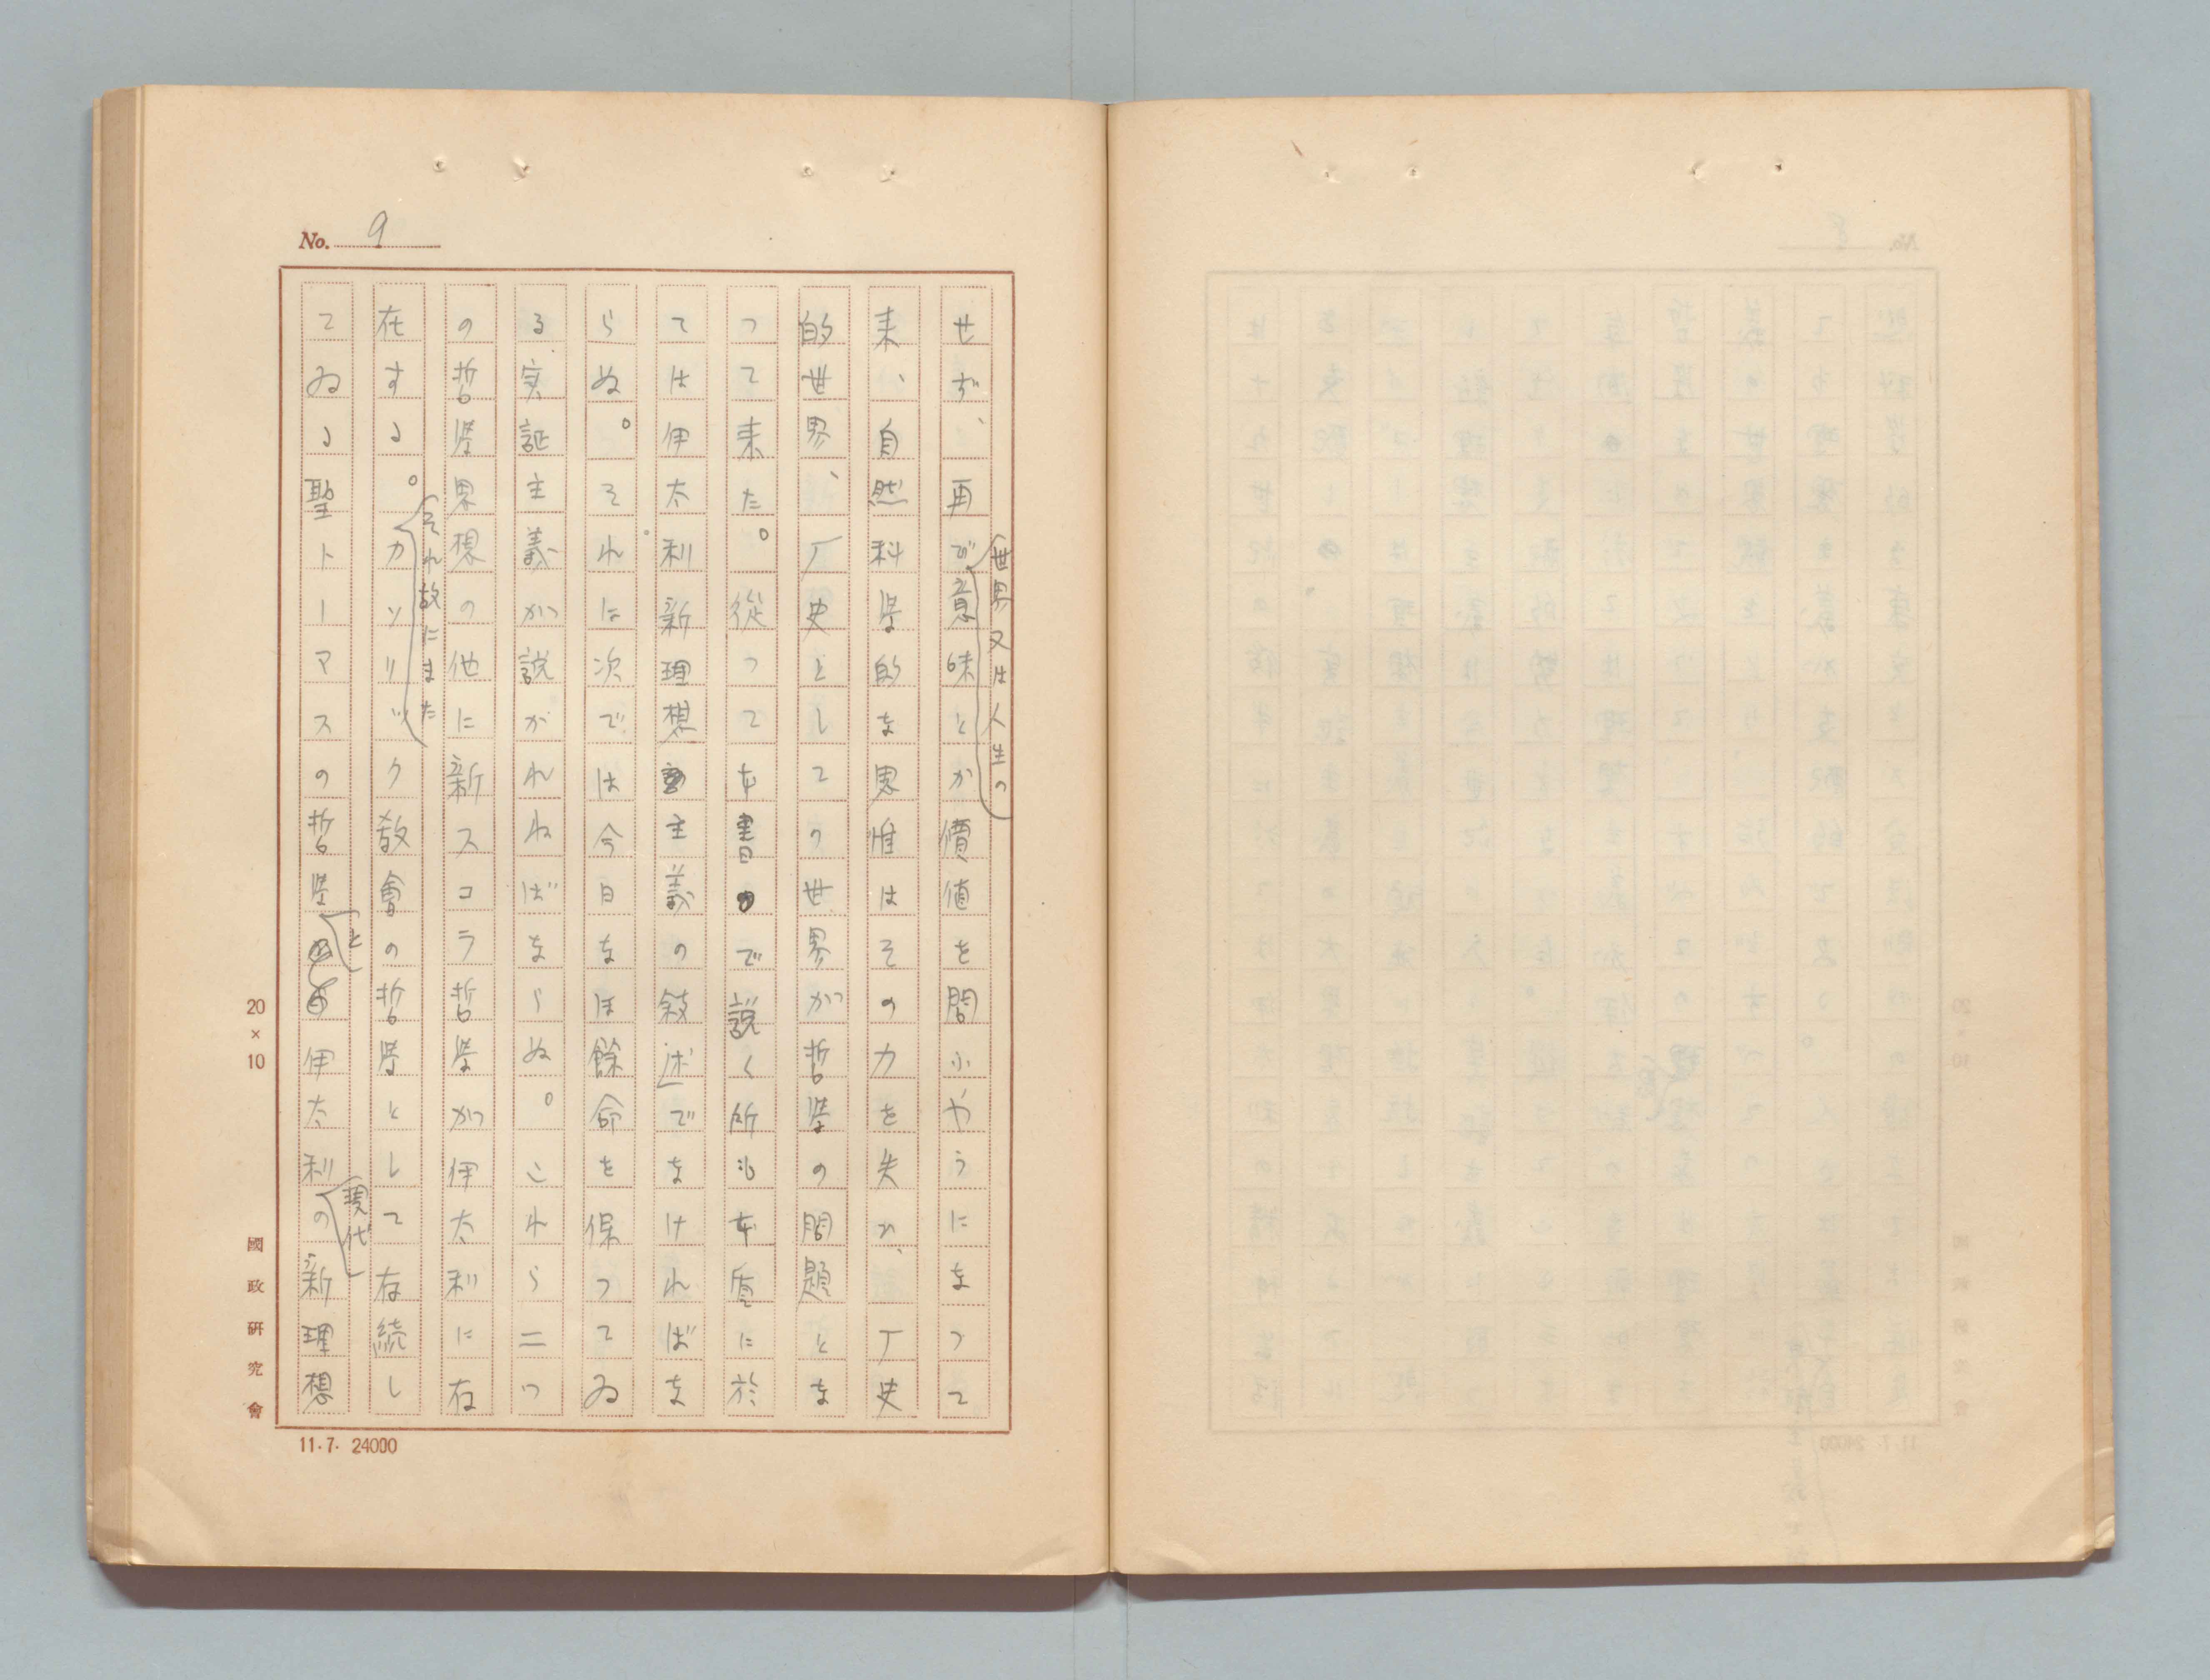 No. 9
せず、再び世界又は人生の意味とか價値を問ふやうになつて
来、自然科学的な思惟はその力を失ひ、厂史
的世界、厂史としての世界が哲学の問題とな
つて来た。従つて本書で説く所も本質に於
ては伊太利新理想主義の敍述でなければな
らぬ。それに次では今日なほ餘命を保つてゐ
る実証主義が説かれねばならぬ。これら二つ
の哲学思想の他に新スコラ哲学が伊太利に存
在する。それ故にまたカソリック教會の哲学として存続し
てゐる聖トーマスの哲学と伊太利現代の新理想
20×10
國政研究會
11.7. 24000